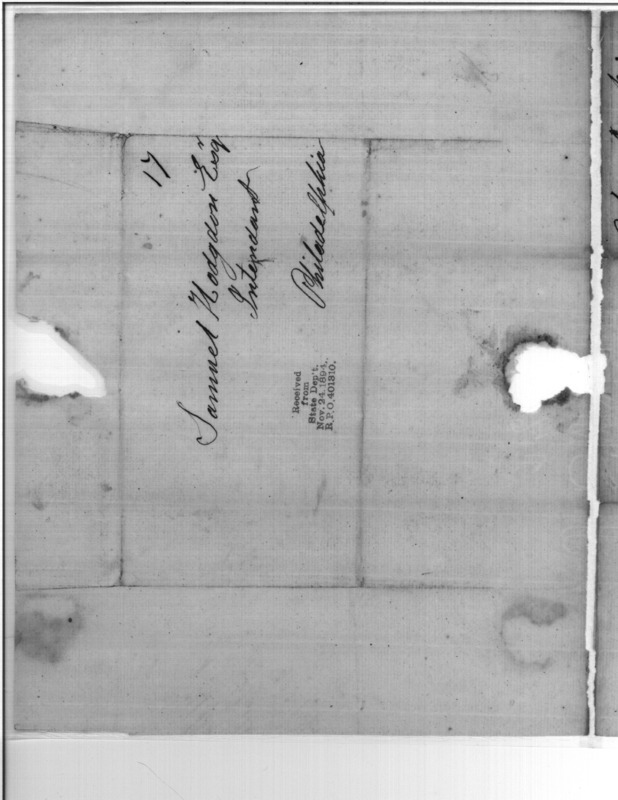 17
Samuel Hodgdon Esqr
Intendant
Philadelphia
Received
from
State Dep't.
Nov. 24, 1894.
R.P.O. 401310.